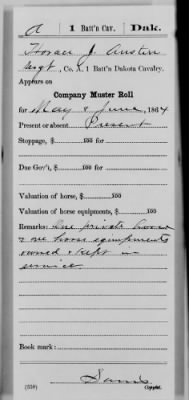 A | 1 Batt'n Cav. | Dak.
Horace J. Austin
Sergt, Co. A, 1 Batt'n Dakota Cavalry.
Appears on
Company Muster Roll
for May & June, 1864
Present or absent Present
Stoppage, $ 100 for
Due Gov't, $ 100 for
Valuation of horse, $ 100
Valuation of horse equipments, $ 100
Remarks: One private horse
& one horse equipments
owned & kept in
service
Book mark:
(358)
Copyist.